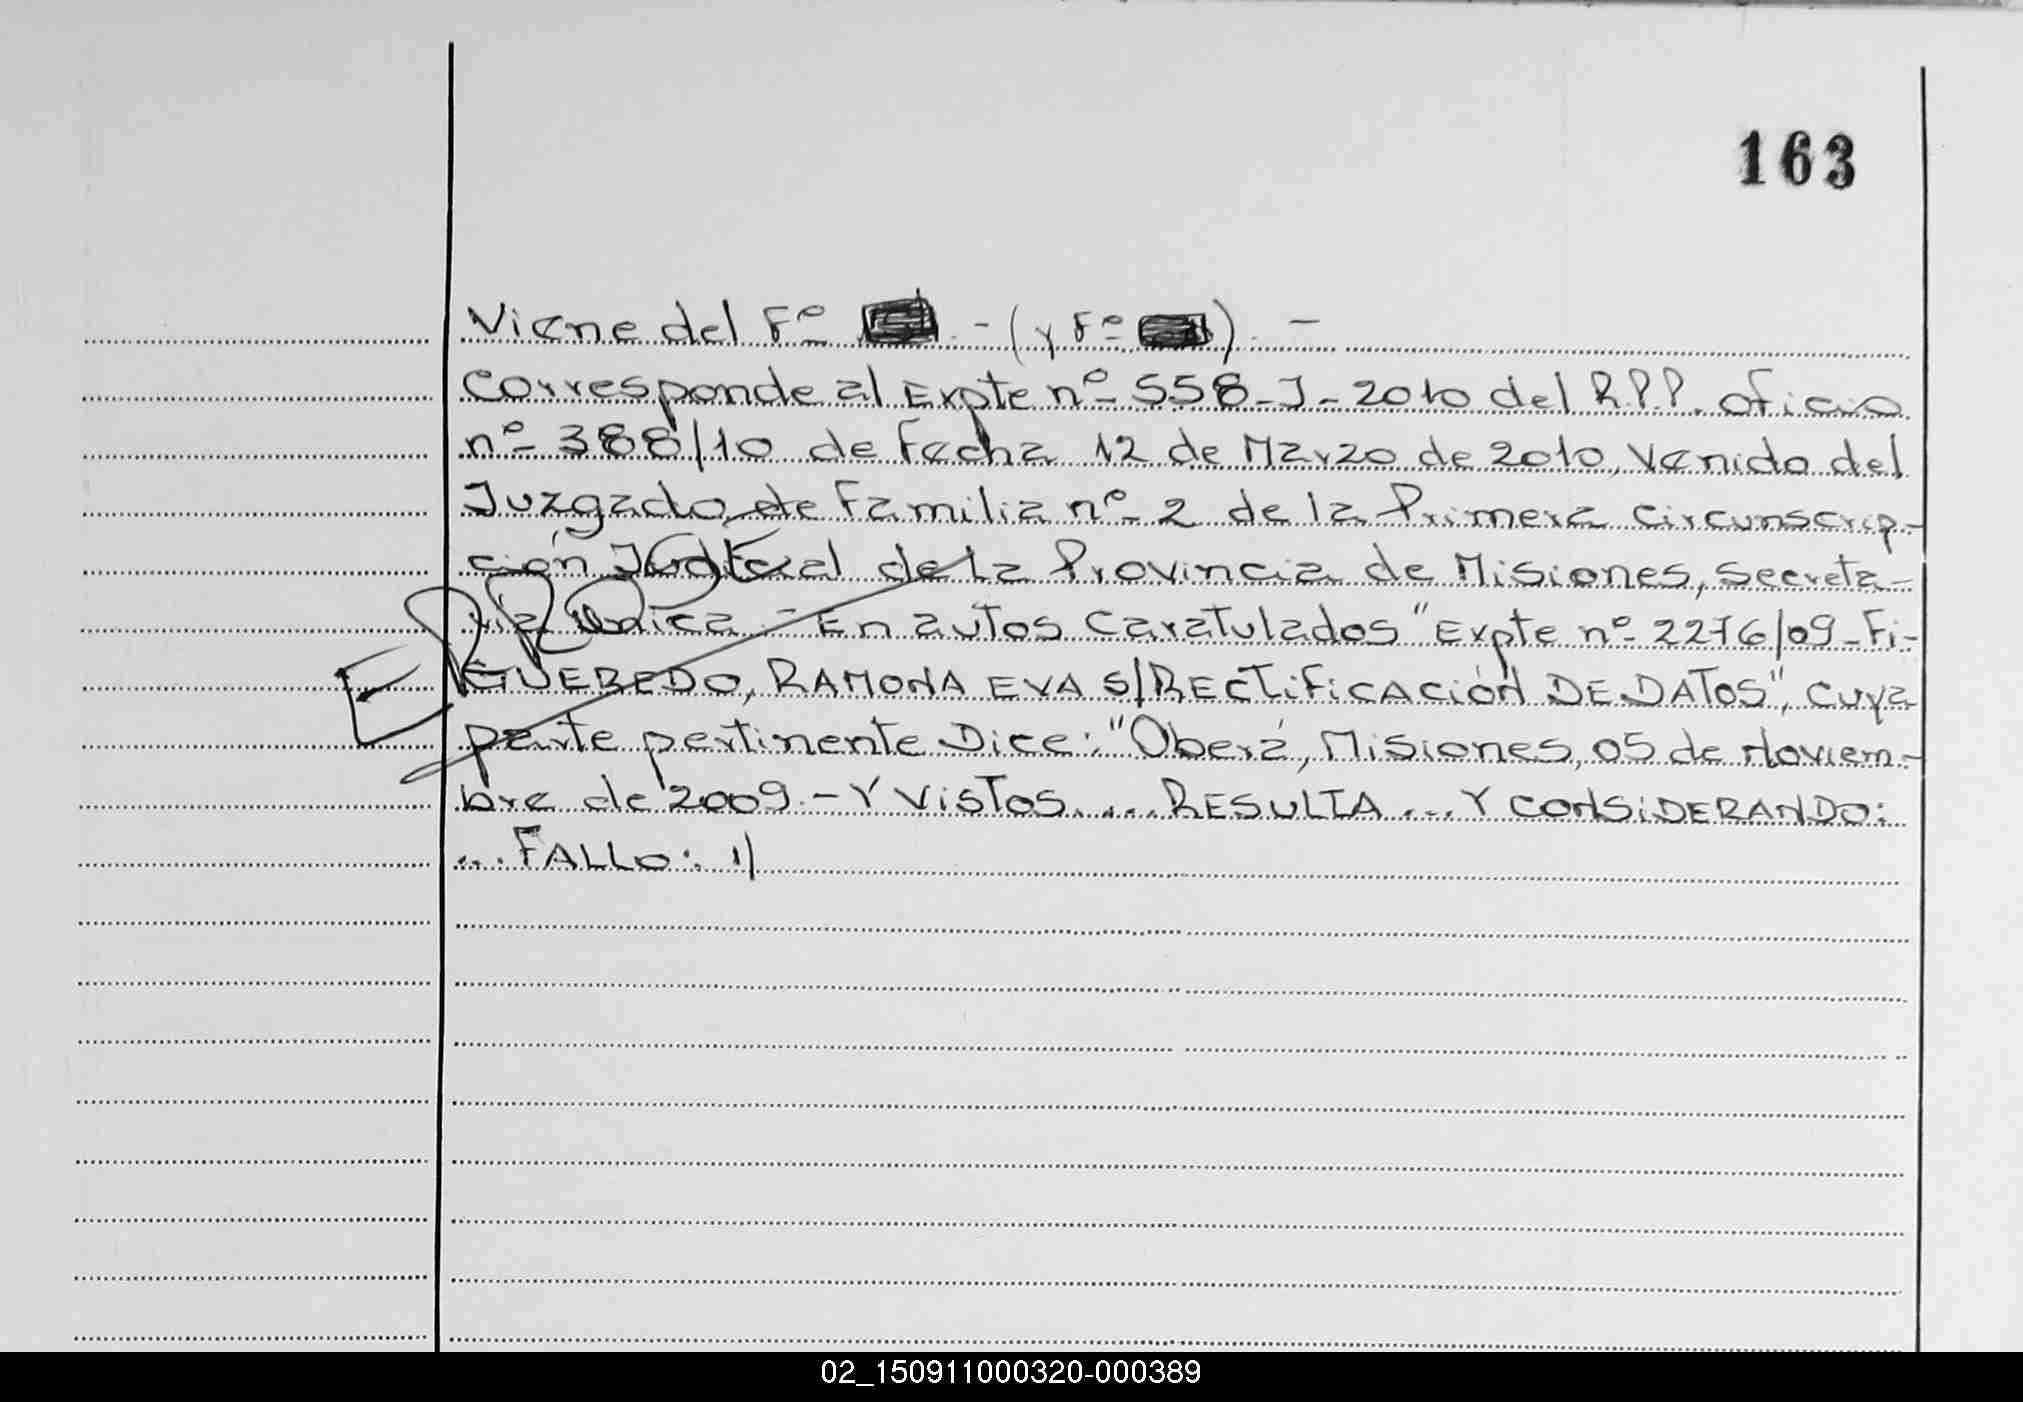 163
Viene del Fº - (y Fº ). -
Corresponde al Expte nº 558-J-2010 del R.P.P. oficio
nº 388/10 de Fecha 12 de Marzo de 2010, Venido del
Juzgado de Familia nº 2 de la Primera circunscrip-
ción Judicial de la Provincia de Misiones, secreta-
ria única.- En autos Caratulados "Expte nº 2276/09-Fi-
GUEREDO, RAMONA EVA S/RECTiFiCACión DE DATOS", cuya
parte pertinente Dice: "Oberá, Misiones, 05 de Noviem-
bre de 2009.- Y VisTos.... RESULTA ... Y CONSiDERANDO:
... FALLO: 1)
Error
02_150911000320-000389